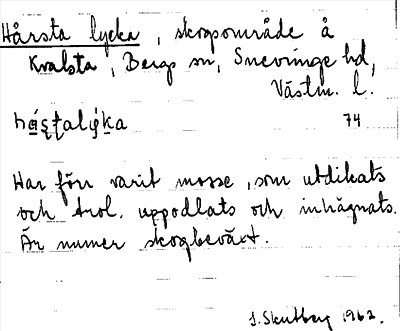 Hårsta lycka, skogsområde å
Kvalsta, Bergs sn, Snevringe hd,
Västm. l.
74
Har förr varit mosse, som utdikats
och trol. uppodlats och inhägnats.
Är numer skogbeväxt.
J. Skutberg 1962.